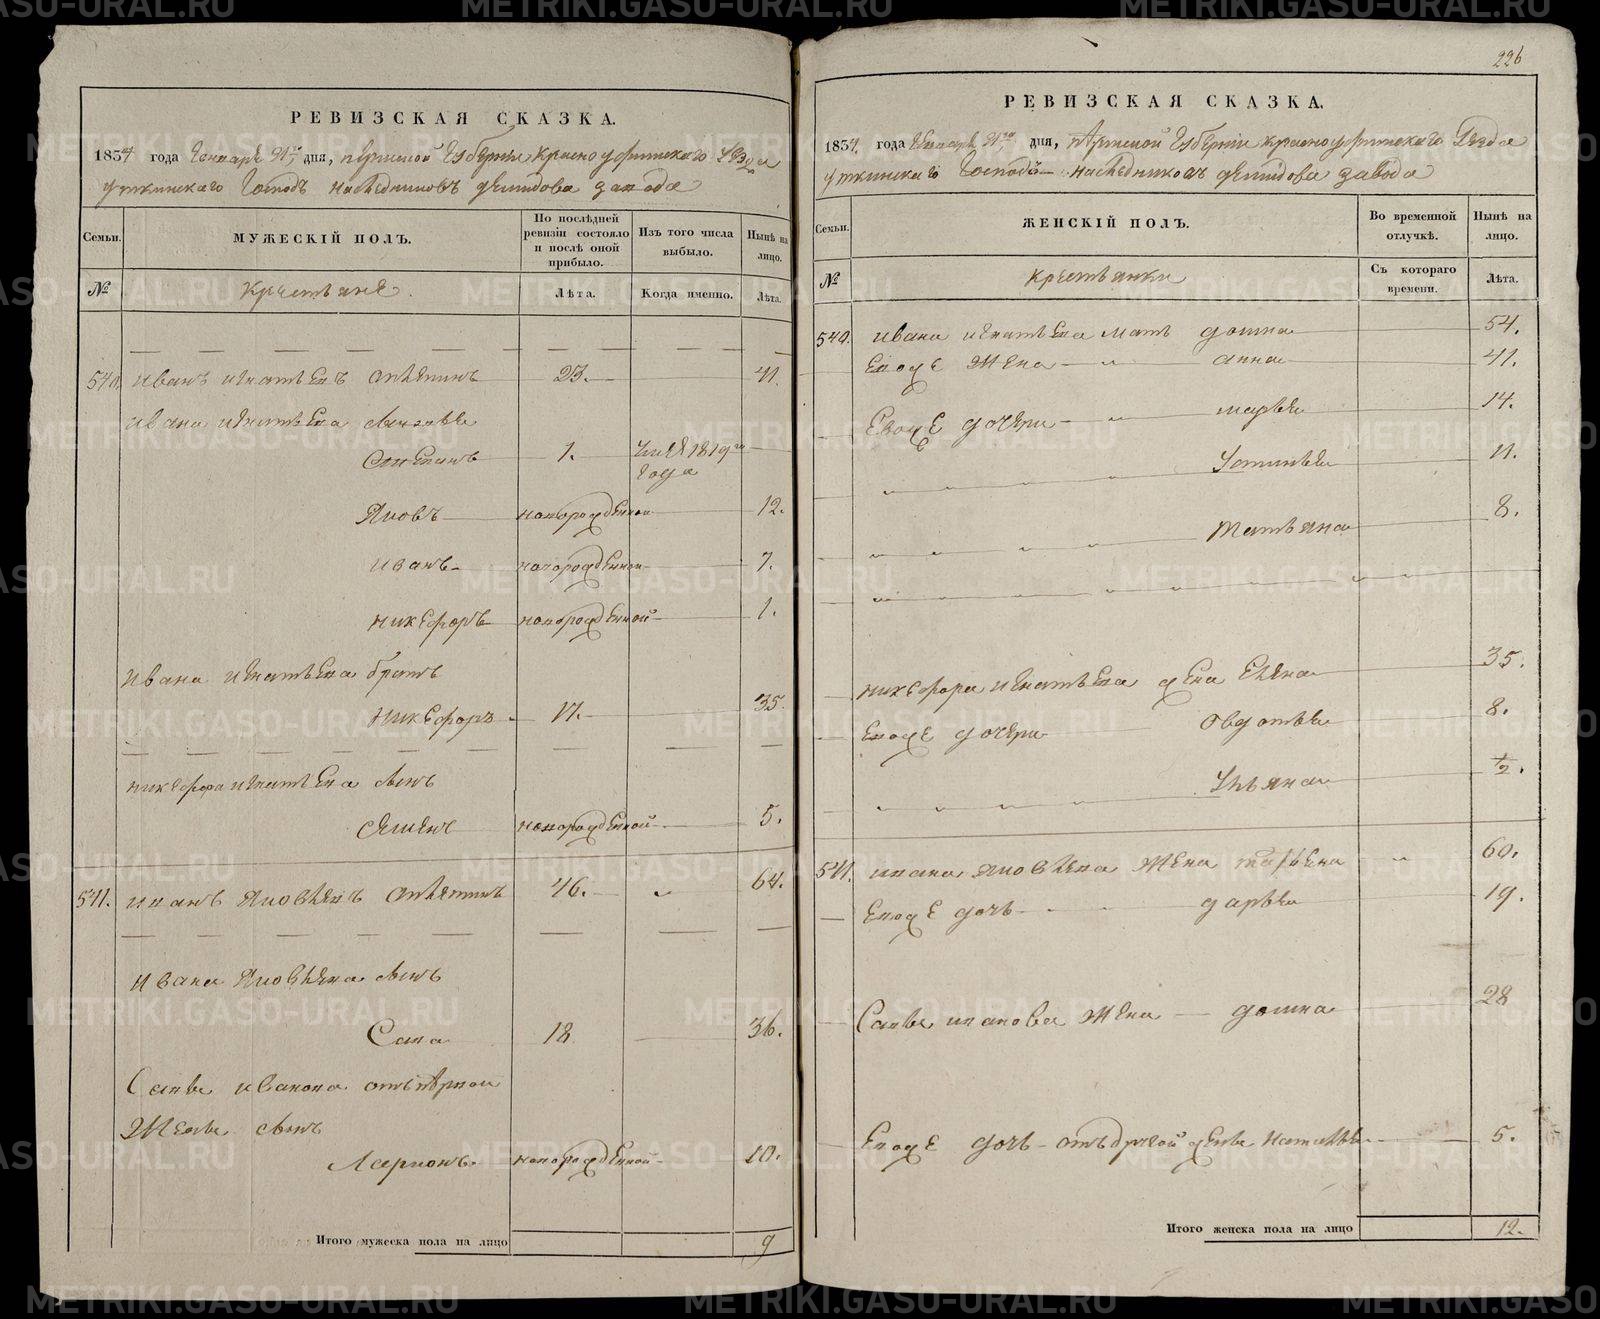 РЕВИЗСКАЯ СКАЗКА.
1834 года Генваря 21го дня, пермской Губернiи красноуфимскаго уезда
уткинскаго Господъ наследниковъ демидова завода
Семьи.
МУЖЕСКIЙ ПОЛЪ.
По послѣдней ревизiи состояло и послѣ оной прибыло.
Изъ того числа выбыло.
Нынѣ на лицо.
№
крестьяне.
Лѣта.
Когда именно.
Лѣта.
540. иванъ игнатьевъ 23. 41.
ивана игнатьева сыновья
Степанъ 1. 1819го
года
Яковъ новорожденной 12.
иванъ новорожденной 7.
никефоръ новорожденной 1.
ивана игнатьева братъ
никефоръ 17. 35.
никефора игнатьева сынъ
новорожденной 5.
541. иванъ яковлевъ 46. 64.
ивана яковлева сынъ
Сава 18 36.
Савы иванова отъ первой
жены сынъ
Ларионъ новорожденной 10.
Итого мужеска пола на лицо 9
226
РЕВИЗСКАЯ СКАЗКА.
1834. года Генваря 21го дня, пермской Губернiи красноуфимскаго уезда
уткинскаго Господъ наследниковъ демидова завода
Семьи.
ЖЕНСКIЙ ПОЛЪ.
Во временной отлучкѣ.
Нынѣ на лицо.
№
крестьянки
Съ котораго времени.
Лѣта.
540. ивана игнатьева мать домна 54.
Евоже жена анна 41.
Евоже дочери марья 14.
Устинья 11.
Татьяна 8.
никефора игнатьева жена Елена 35.
Евоже дочери овдотья 8.
Ульяна 1/2.
541. ивана яковлева жена 60.
Евоже дочь дарья 19.
Савы иванова жена домна 28
Евоже дочь отъ другой жены Наталья 5.
Итого женска пола на лицо 12.
METRIKI.GASO-URAL.RU